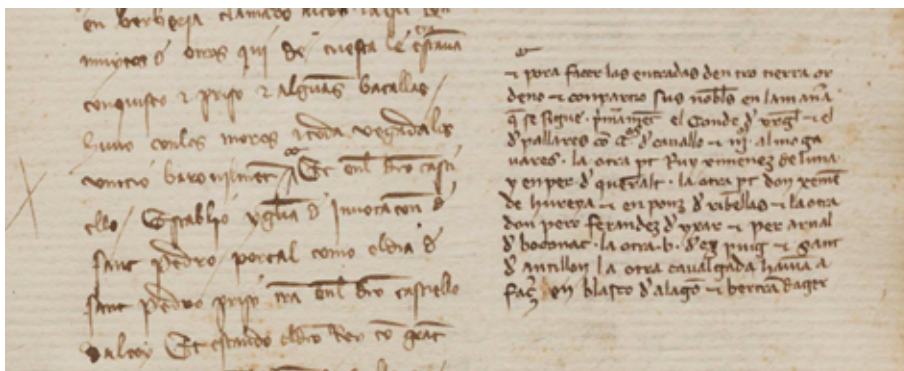 en berberia clamado alcoy
muytos d otros qui de cuesta le estaua
conquisto ⁊ priso ⁊ algũas batallas
huuo conlos moros ⁊ toda vegadalis
vencio baronilmet Et enl dto casti
ello Establio yglia d Inuocacion d
sant pedro portal como eldia d
sant pedro priso tra enl dto castiello
dalcoy Et estando eldto Rey co grat
⁊ pora facer las entradas den tro tierra or
deno ⁊ compartio sus nobles en la mañã
q̃ se sigue . p̃meramet el Conde d vrgel ⁊ el
d pallares cõ d cauallo ⁊ almoga
uares . la otra pt Ruy ximenez de luna
y en per d queralt . la otra pt don xeme
de hureya ⁊ en ponz d ribellas ⁊ la otra
don pero ferandez d yxar ⁊ per arnal
d bodonac . la otra . b . d'ez puig ⁊ sant
d antillon la otra caualgada hauia a
faz en blasco d'alago ⁊ bertra dager